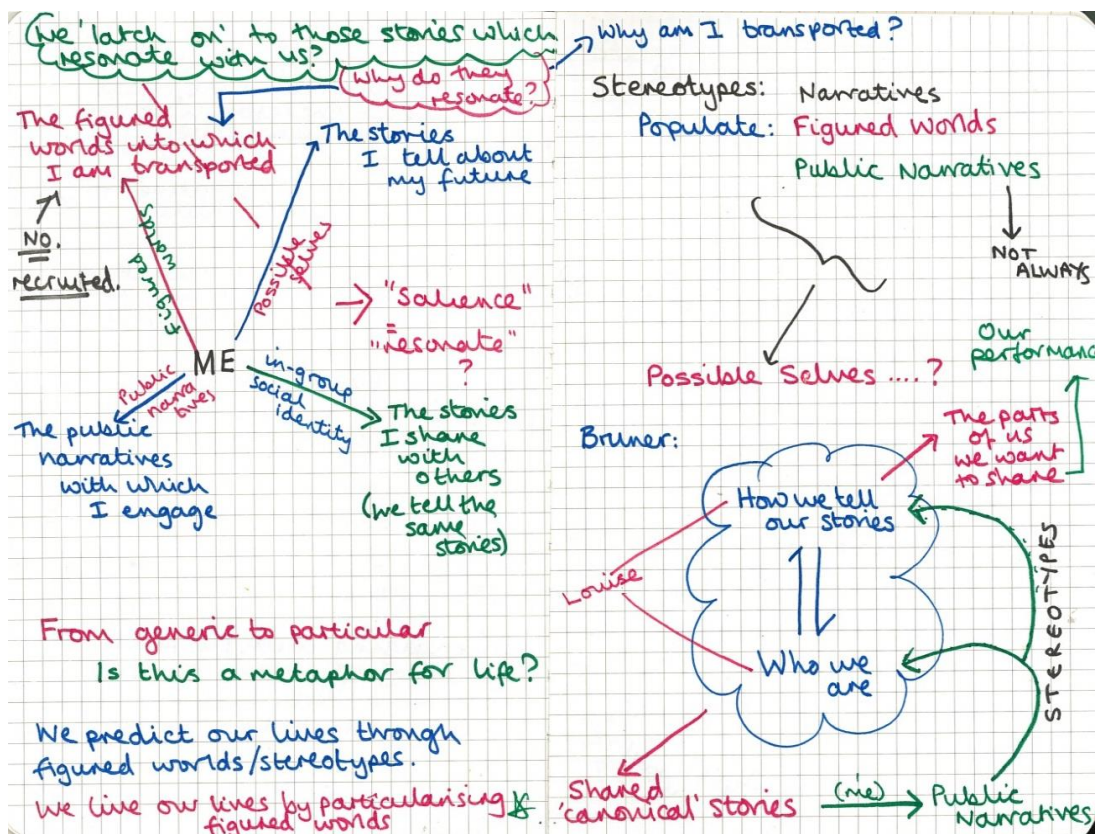 We 'latch on' to those stories which
resonate with us?
Why do they
resonate?
The figured
worlds into which
I am transported
NO.
recruited.
Figured worlds
The stories
I tell about
my future
Possible selves
"Salience"
=
"resonate"
?
ME
Public
narra
tives
The public
narratives
with which
I engage
in-group
social
identity
The stories
I share
with
others
(we tell the
same
stories)
From generic to particular
Is this a metaphor for life?
We predict our lives through
figured worlds/stereotypes.
We live our lives by particularising
figured worlds
Why am I transported?
Stereotypes: Narratives
Populate: Figured Worlds
Public Narratives
NOT
ALWAYS
Possible Selves ....?
Our
performance
The parts
of us
we want
to share
Bruner:
How we tell
our stories
Louise
Who we
are
STEREOTYPES
Shared
'canonical' stories
(me)
Public
Narratives